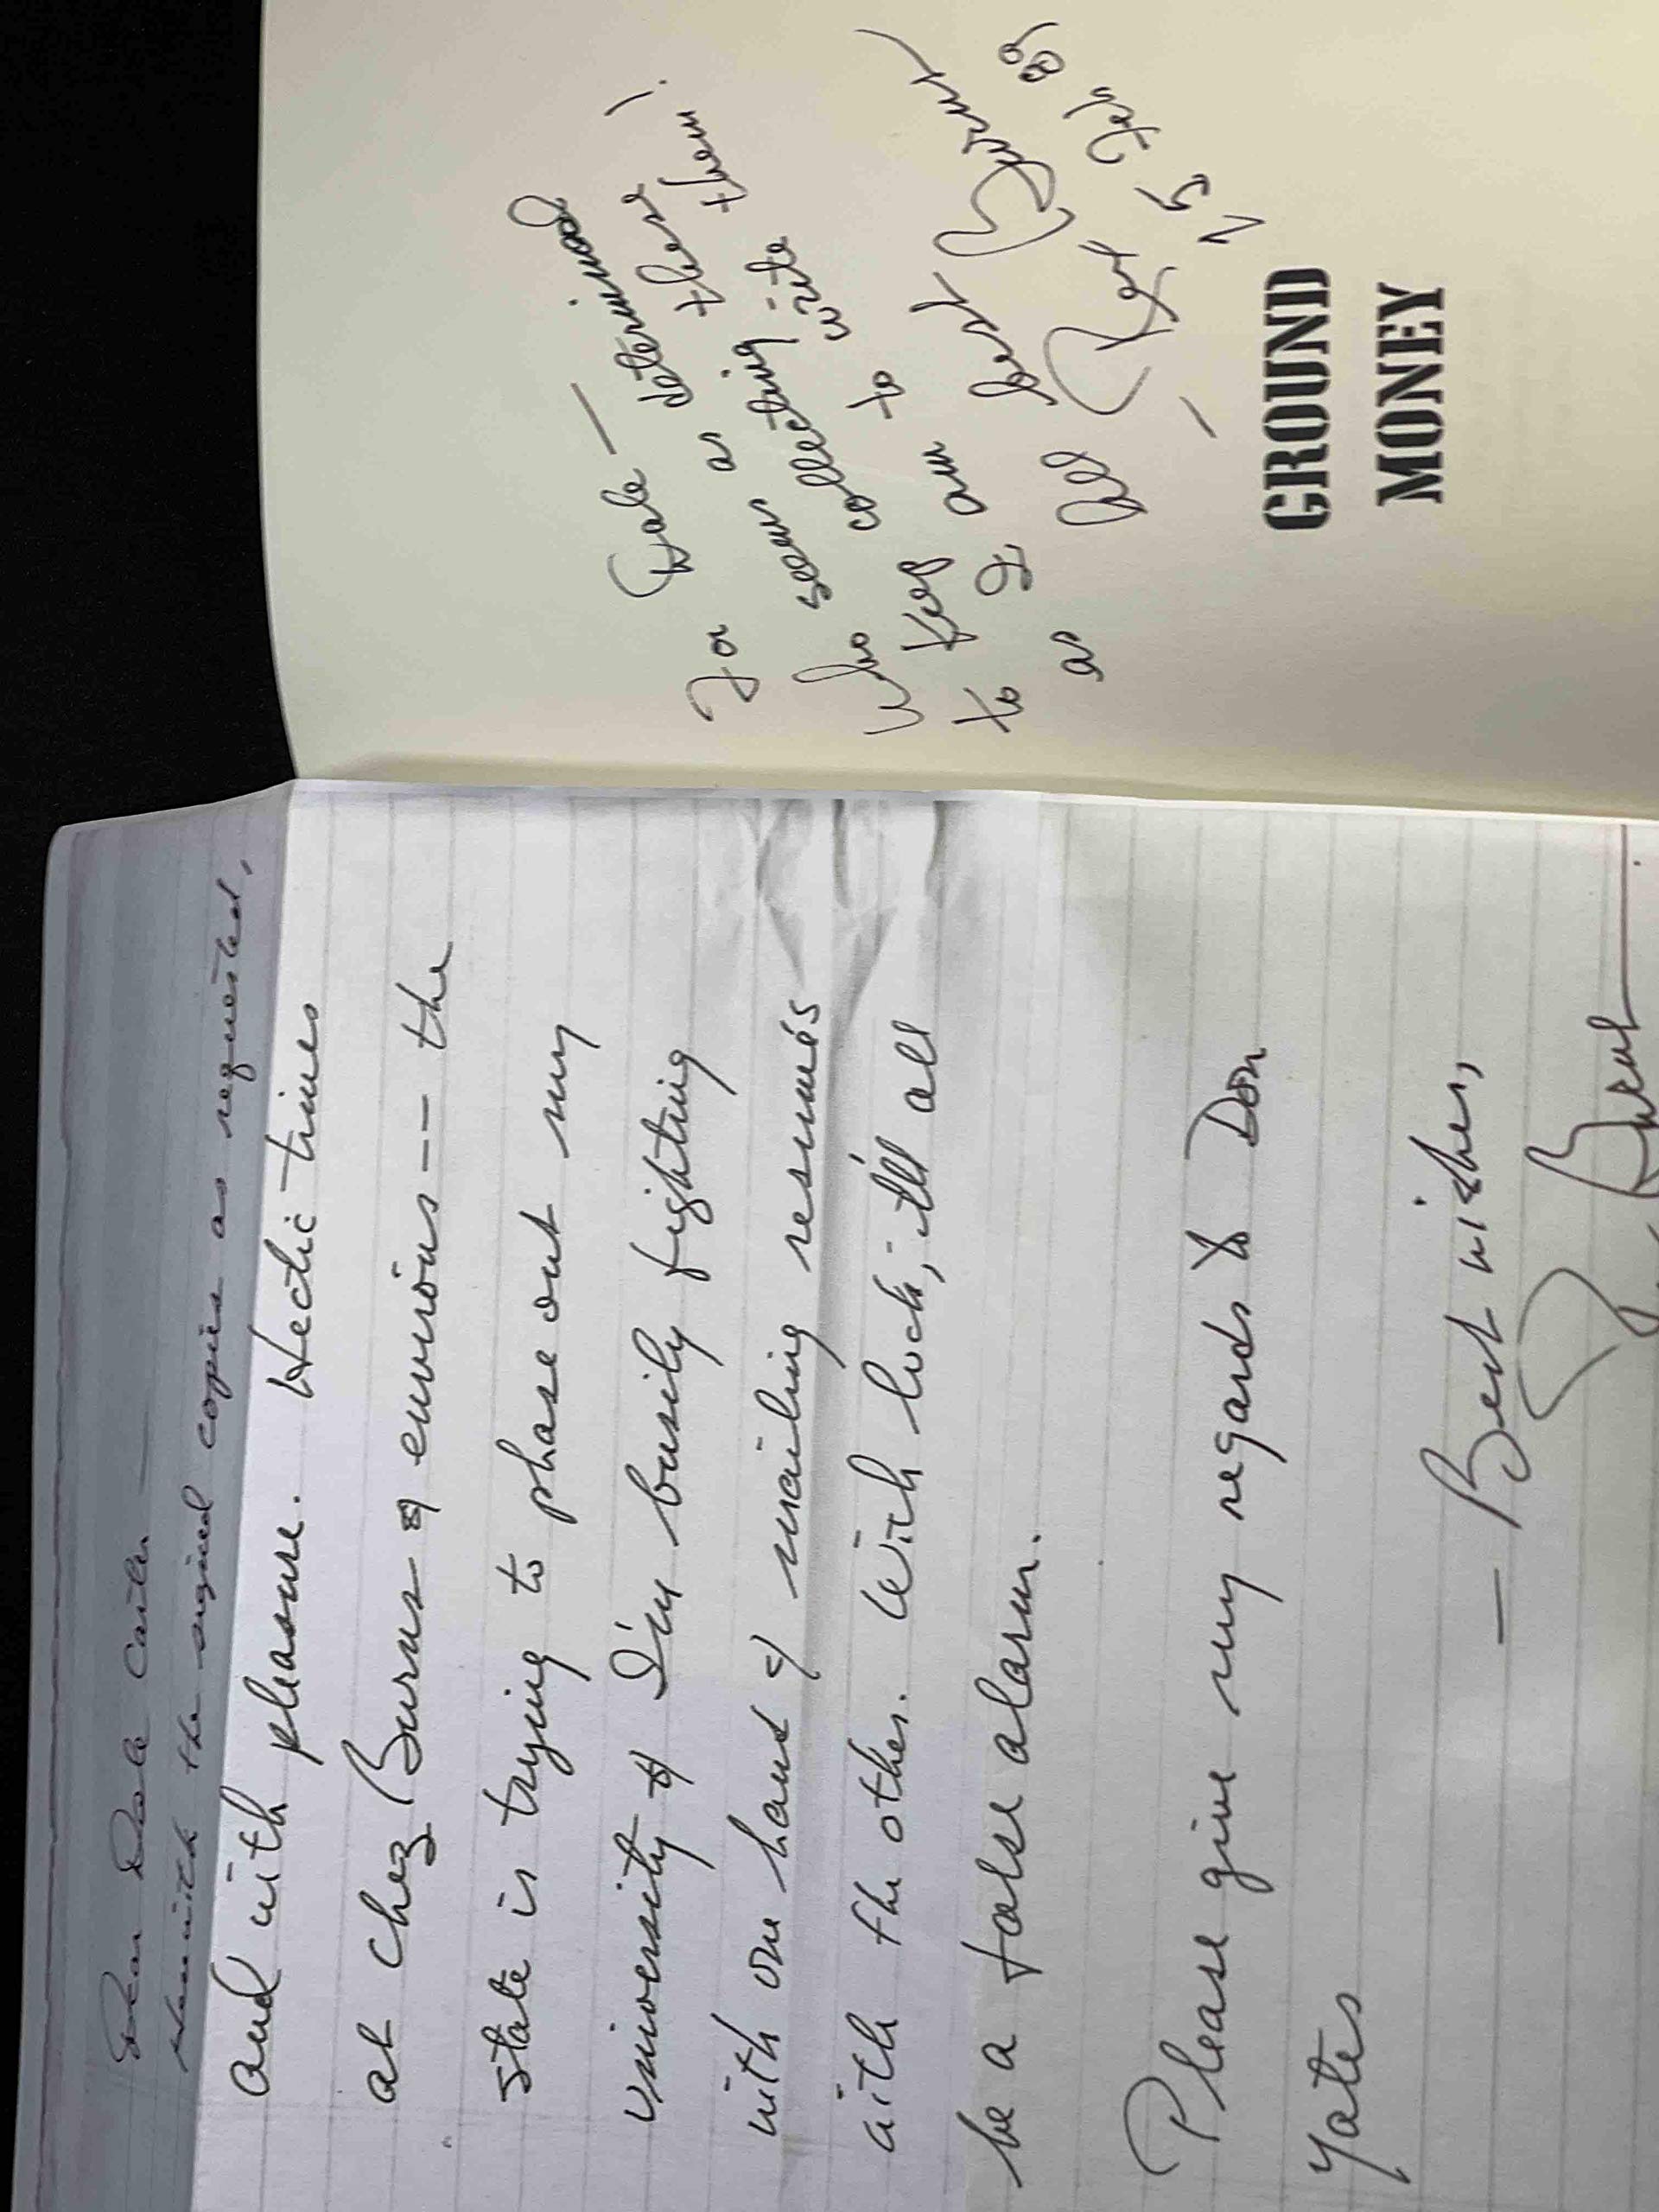 Dear Dale Carter —
Herewith the signed copies as requested,
and with pleasure. Hectic times
at chez Burns & environs -- the
state is trying to phase out my
university & I'm busily fighting
with one hand & mailing resumés
with the other. With luck, it'll all
be a false alarm.
Please give my regards to Don
Yates
— Best wishes,
For Dale —
who seems as determined
to keep collecting these
as I am to write them!
All best
Rex Burns
— 25 Feb 89
GROUND
MONEY